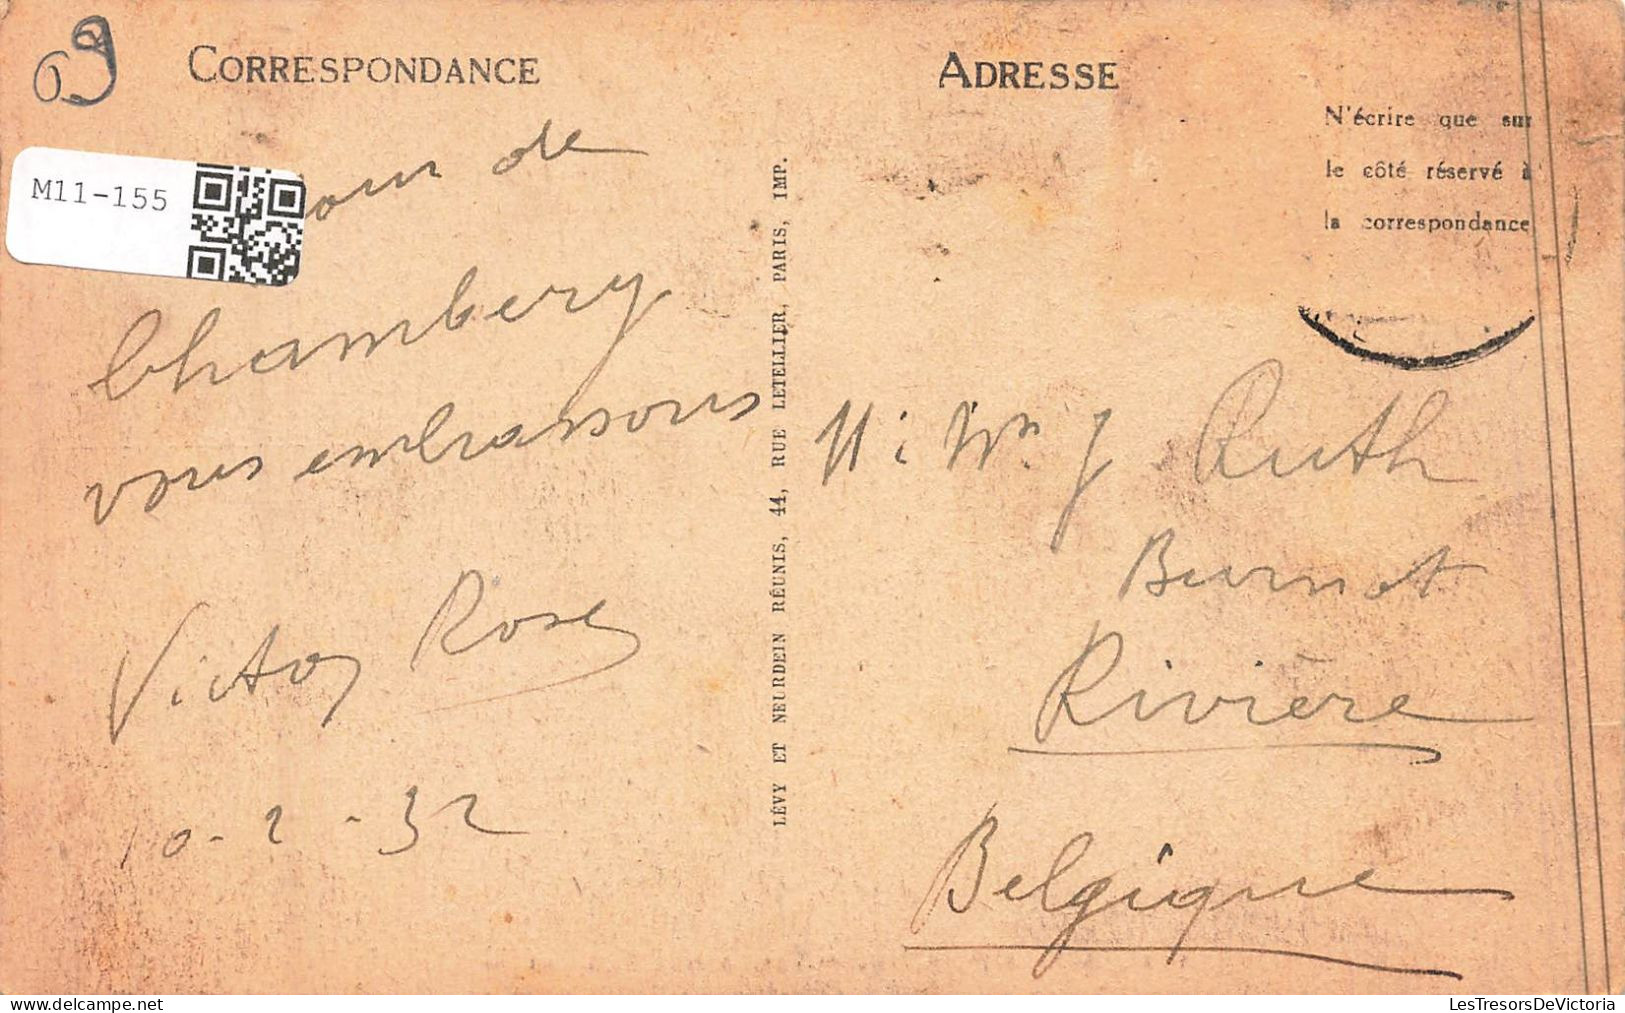 69
CORRESPONDANCE
M11-155
de
Chambery
vous embrassons
Victor Rose
10-2-32
LÉVY ET NEURDEIN RÉUNIS, 44, RUE LETELLIER, PARIS, IMP.
ADRESSE
N'écrire que sur
le côté réservé à
la correspondance
J Ruth
Burnot
Rivière
Belgique
LesTresorsDeVictoria